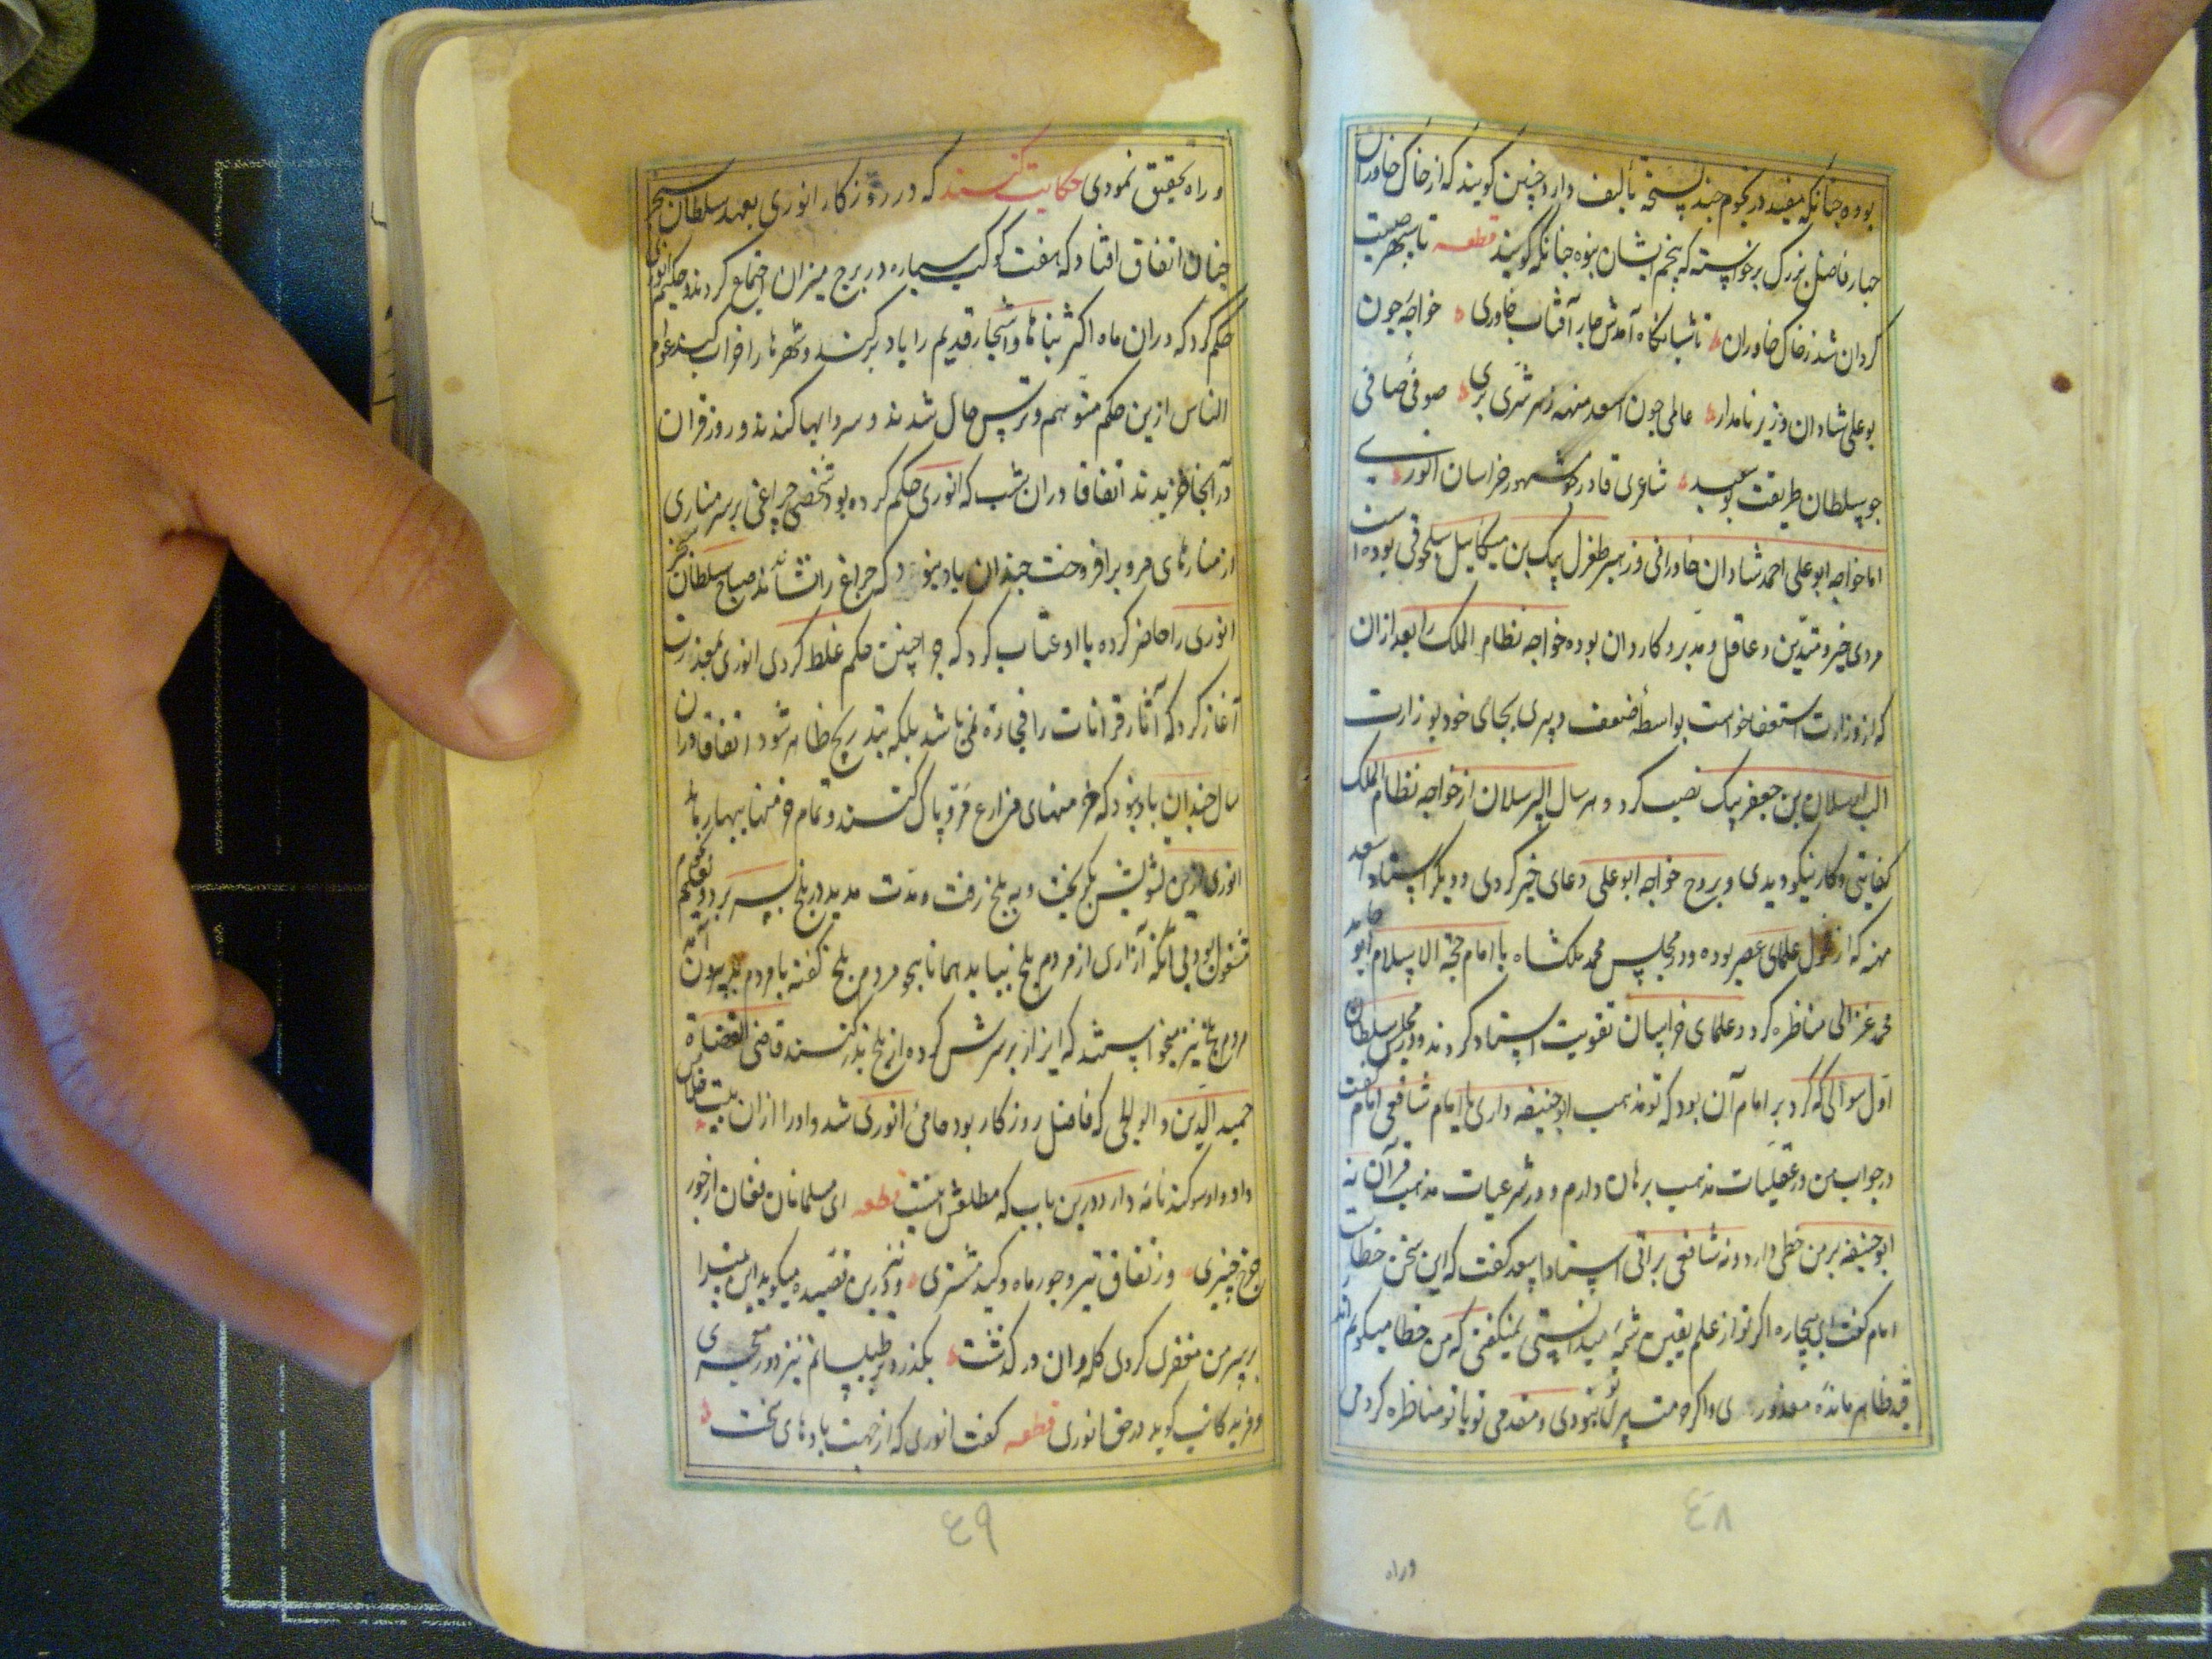 بوده چنانکه مفید در نجوم چند نسخه تألیف دارد و چنین کویند که از خاک خاوران
چهار فاضل بزرک برخواسته که پنجم ایشان نبوه چنانکه کویند قطعه تا سپهر صیت
کردان شد ز خاک خاوران تا شبانکاه آمدش چار آفتاب خاوری خواجه چون
بو علی شادان وزیر نامدار عالمی چون اسعد مهنه ز هر شری بری صوفئ صافی
چو سلطان طریقت بو سعید شاعری قادر چو مشهور خراسان انوری
اما خواجه ابو علی احمد شادان خاورانی وزیر طغرل بیک بن میکائیل سلجوقی بوده است
مردی خیر و متدین و عاقل و مدبر و کاردان بوده خواجه نظام الملک را بعد ازان
که از وزارت استعفا خواست بواسطهٔ ضعف و پیری بجای خود بوزارت
الب ارسلان بن جعفر بیک نصب کرد و هر سال الپ ارسلان از خواجه نظام الملک
کفایتی و کار نیکو دیدی و بر روح خواجه ابو علی دعای خیر کردی و دیکر استاد اسعد
مهنه که از فحول علمای عصر بوده و در مجلس محمد ملکشاه با امام حجة الاسلام ابو حامد
محمد غزالی مناظره کرد و علمای خراسان تقویت استاد کردند و در مجلس سلطان
اول سوالی که کرد بر امام آن بود که تو مذهب ابو حنیفه داری یا امام شافعی امام کفت
در جواب من در عقلیات مذهب برهان دارم و در شرعیات مذهب قرآن نه
ابو حنیفه بر من خطی دارد و نه شافعی براتی استاد اسعد کفت که این سخن خطاست
امام کفت ای بیچاره اکر تو از علم یقین شمهٔ میدانستی نمیکفتی که من خطا میکویم
قید ظاهر ماندهٔ معذوری و اکر حرمت پیری نبودی و مقدمی تو با تو مناظره کردمی
وراه
و راه تحقیق نمودی حکایت کنند که در روزکار انوری بعهد سلطان سنجر
چنان اتفاق افتاد که هفت کوکب سیاره در برج میزان اجتماع کردند و حکیم انوری
حکم کرد که دران ماه اکثر بناها و اشجار قدیم را باد برکند و شهرها را خراب کند عوام
الناس ازین حکم متوهم و ترس حال شدند و سردابها کندند و روز قران
در آنجا خزیدند اتفاقا دران شب که انوری حکم کرده بود شخصی چراغی بر سر مناری
از منارهای مرو برافروخت چندان باد نبود که چراغ را نشاند صباح سلطان سنجر
انوری را حاضر کرده با او عتاب کرد که چرا چنین حکم غلط کردی انوری معذرت
آغاز کرد که آثار قرانات را فجاءة نمی باشد بلکه بتدریج ظاهر شود اتفاقا دران
سال چندان باد نبود که خرمنهای مزارع مرو پاک کنند و تمام خرمنها ببهار بماند
انوری ازین تشویش بکریخت و به بلخ رفت و مدت مدید در بلخ بسر برد و بتعلیم
مشغول بود بی آنکه آزاری از مردم بلخ بیابد همانا هجو مردم بلخ کفته
مردم بلخ نیز میخواستند که ایزار بر سرش کرده از بلخ بدر کنند قاضی القضاة
حمید الدین والوالجی که فاضل روزکار بود حامئ انوری شد و او را ازان بلیت خلاص
داد و او سوکندنامه دارد درین باب که مطلعش اینست قطعه ای مسلمانان فغان از جور
چرخ چنبری وز نفاق تیر و جور ماه و کید مشتری و نیز درین قصیده میکوید این بیت را
بر سر من مغفری کردی کله وان در کذشت بکذرد بر طیلسانم نیز دور معجری
و فرید کاتب کوید در حق انوری قطعه کفت انوری که از جهت بادهای سخت